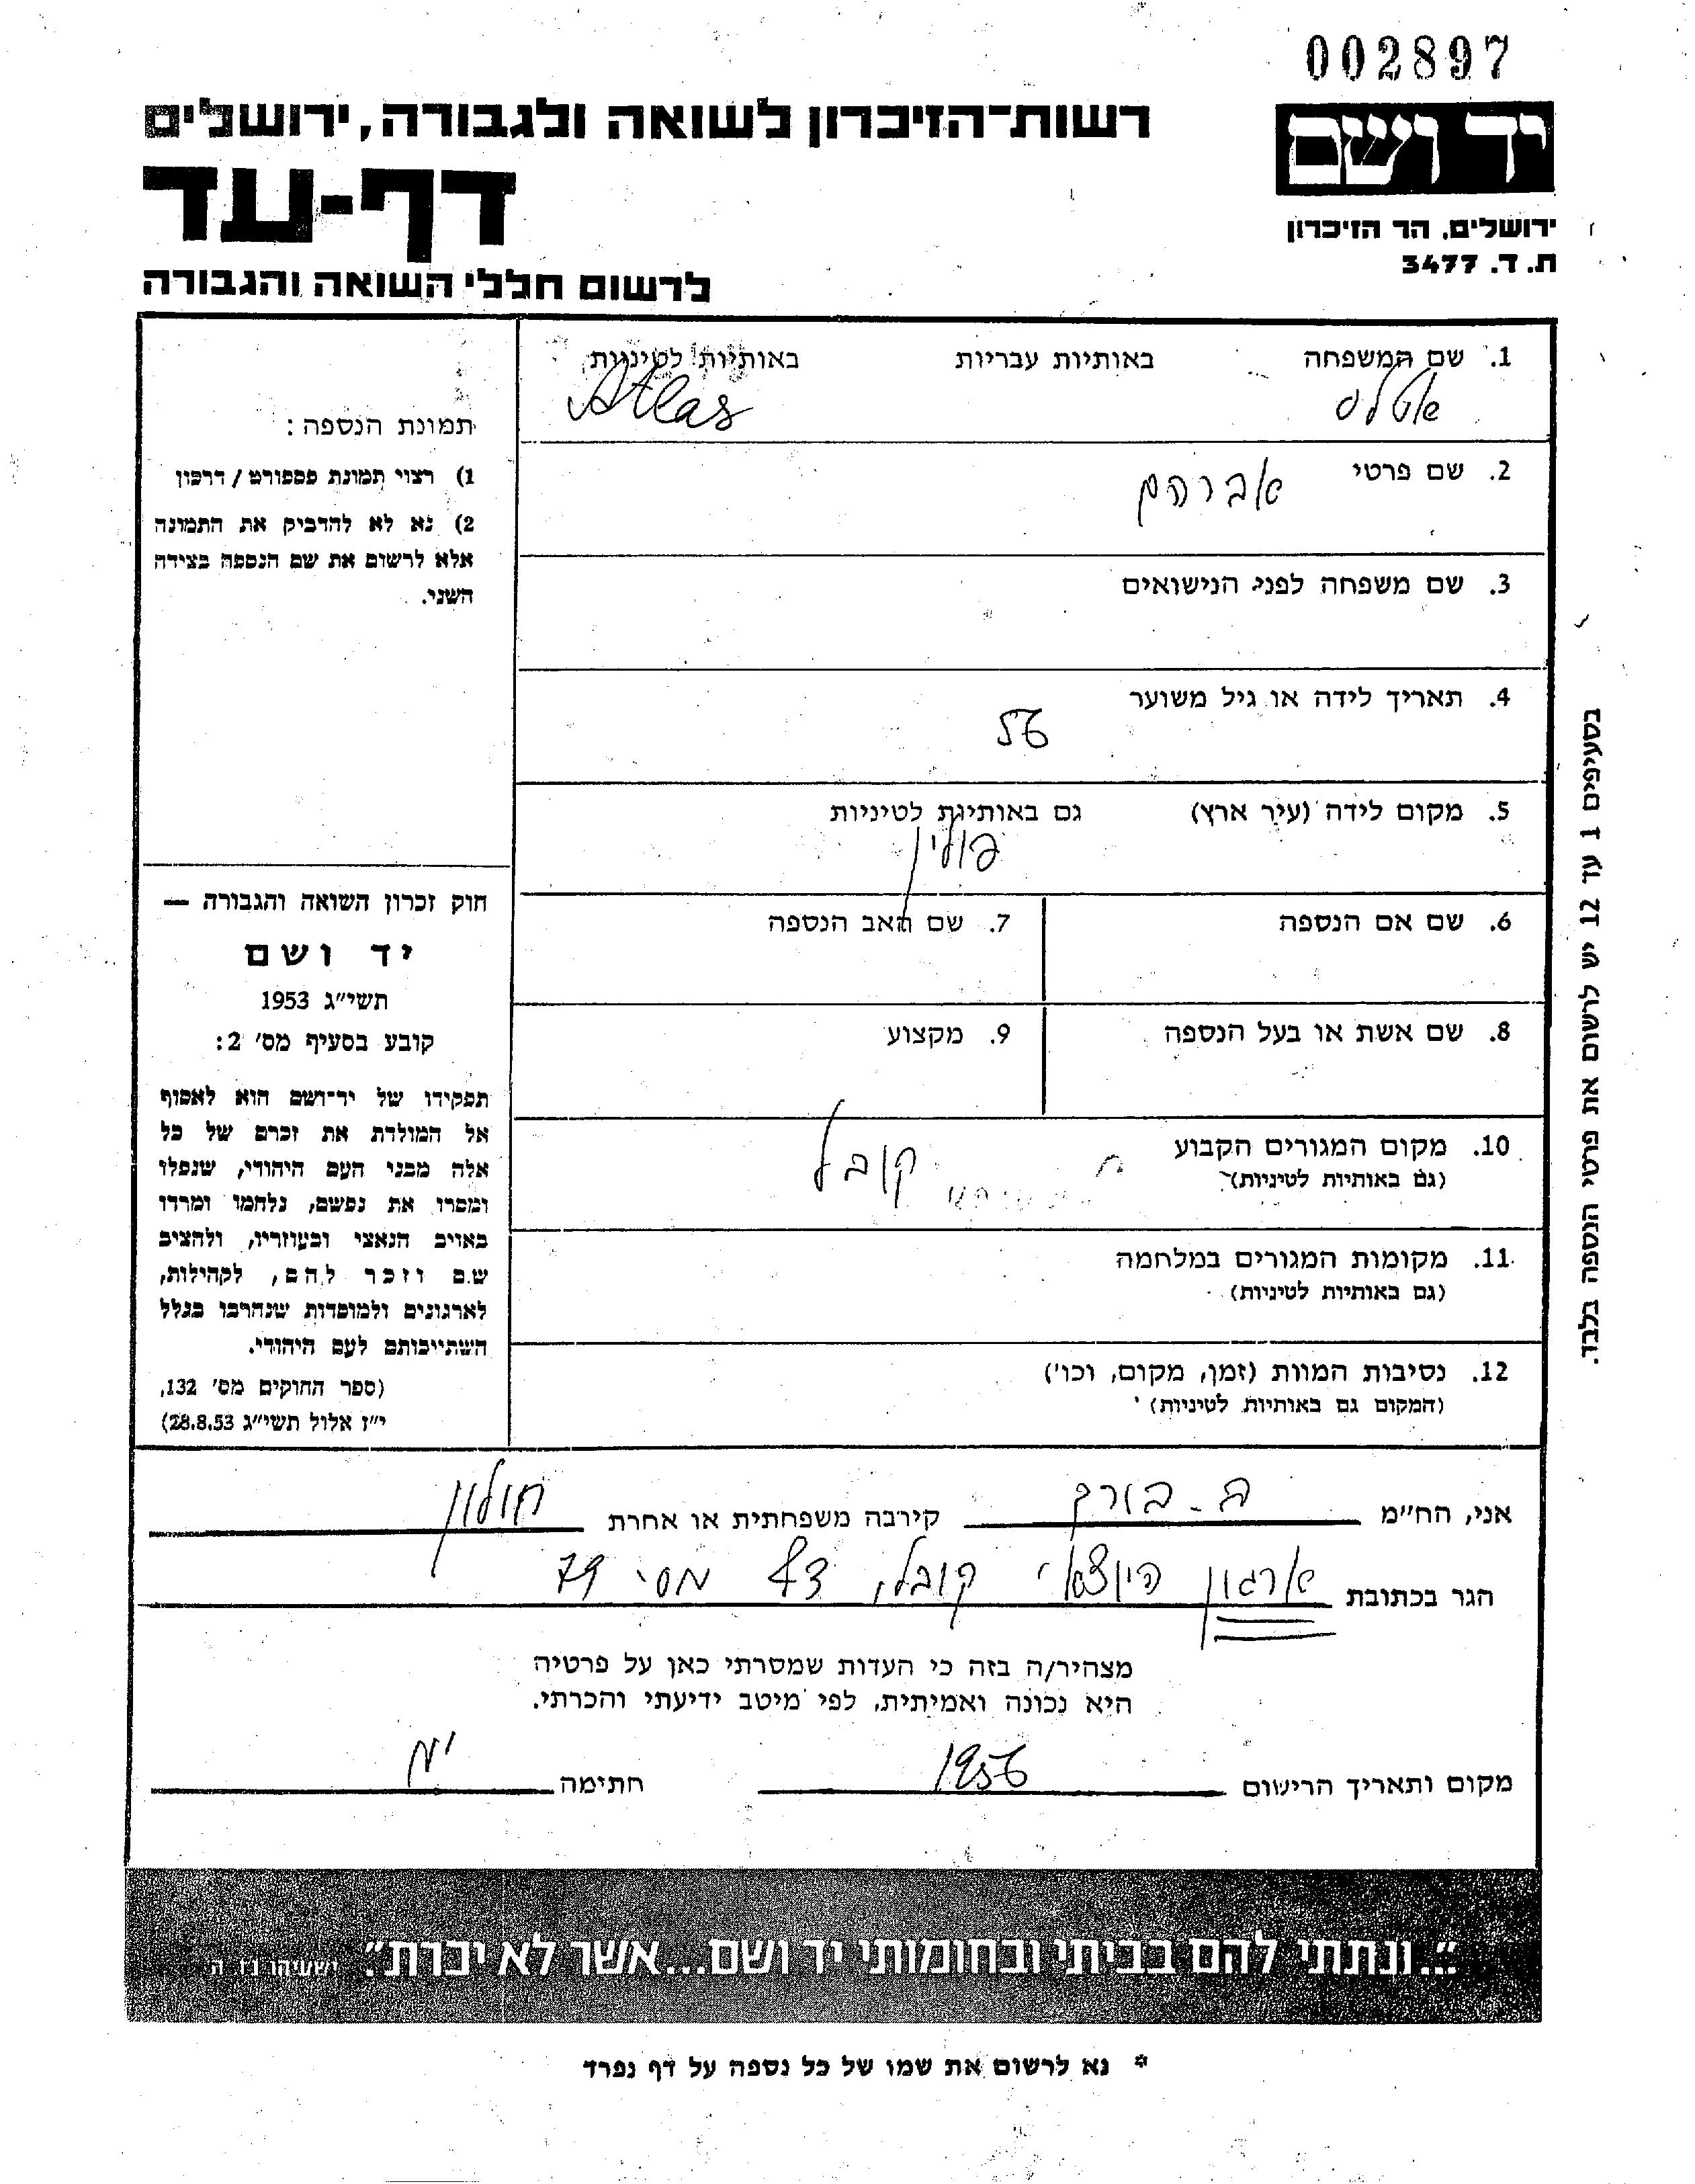 002897
יד ושם
רשות־הזיכרון לשואה ולגבורה, ירושלים
דף-עד
ירושלים, הר הזיכרון
ת. ד. 3477
לרשום חללי השואה והגבורה
1. שם המשפחה באותיות עבריות באותיות לטיניות
אטלס Atlas
2. שם פרטי אברהם
3. שם משפחה לפני הנישואים
4. תאריך לידה או גיל משוער
56
5. מקום לידה (עיר ארץ) גם באותיות לטיניות
פולין
6. שם אם הנספה 7. שם האב הנספה
8. שם אשת או בעל הנספה 9. מקצוע
10. מקום המגורים הקבוע
(גם באותיות לטיניות) קובל
11. מקומות המגורים במלחמה
(גם באותיות לטיניות)
12. נסיבות המוות (זמן, מקום, וכו')
(המקום גם באותיות לטיניות)
תמונת הנספה:
1) רצוי תמונת פספורט / דרכון
2) נא לא להדביק את התמונה
אלא לרשום את שם הנספה בצידה
השני.
חוק זכרון השואה והגבורה —
יד ושם
תשי"ג 1953
קובע בסעיף מס' 2:
תפקידו של יד־ושם הוא לאסוף
אל המולדת את זכרם של כל
אלה מבני העם היהודי, שנפלו
ומסרו את נפשם, נלחמו ומרדו
באויב הנאצי ובעוזריו, ולהציב
שם וזכר להם, לקהילות,
לארגונים ולמוסדות שנחרבו בגלל
השתייכותם לעם היהודי.
(ספר החוקים מס' 132,
י"ז אלול תשי"ג 28.8.53)
בסעיפים 1 עד 12 יש לרשום את פרטי הנספה בלבד.
אני, הח"מ קירבה משפחתית או אחרת חולון
הגר בכתובת ארגון היוצאי קובל, מס' 79
מצהיר/ה בזה כי העדות שמסרתי כאן על פרטיה
היא נכונה ואמיתית, לפי מיטב ידיעתי והכרתי.
מקום ותאריך הרישום 1956 חתימה
"...ונתתי להם בביתי ובחומותי יד ושם...אשר לא יכרת". ישעיהו נו ה
* נא לרשום את שמו של כל נספה על דף נפרד